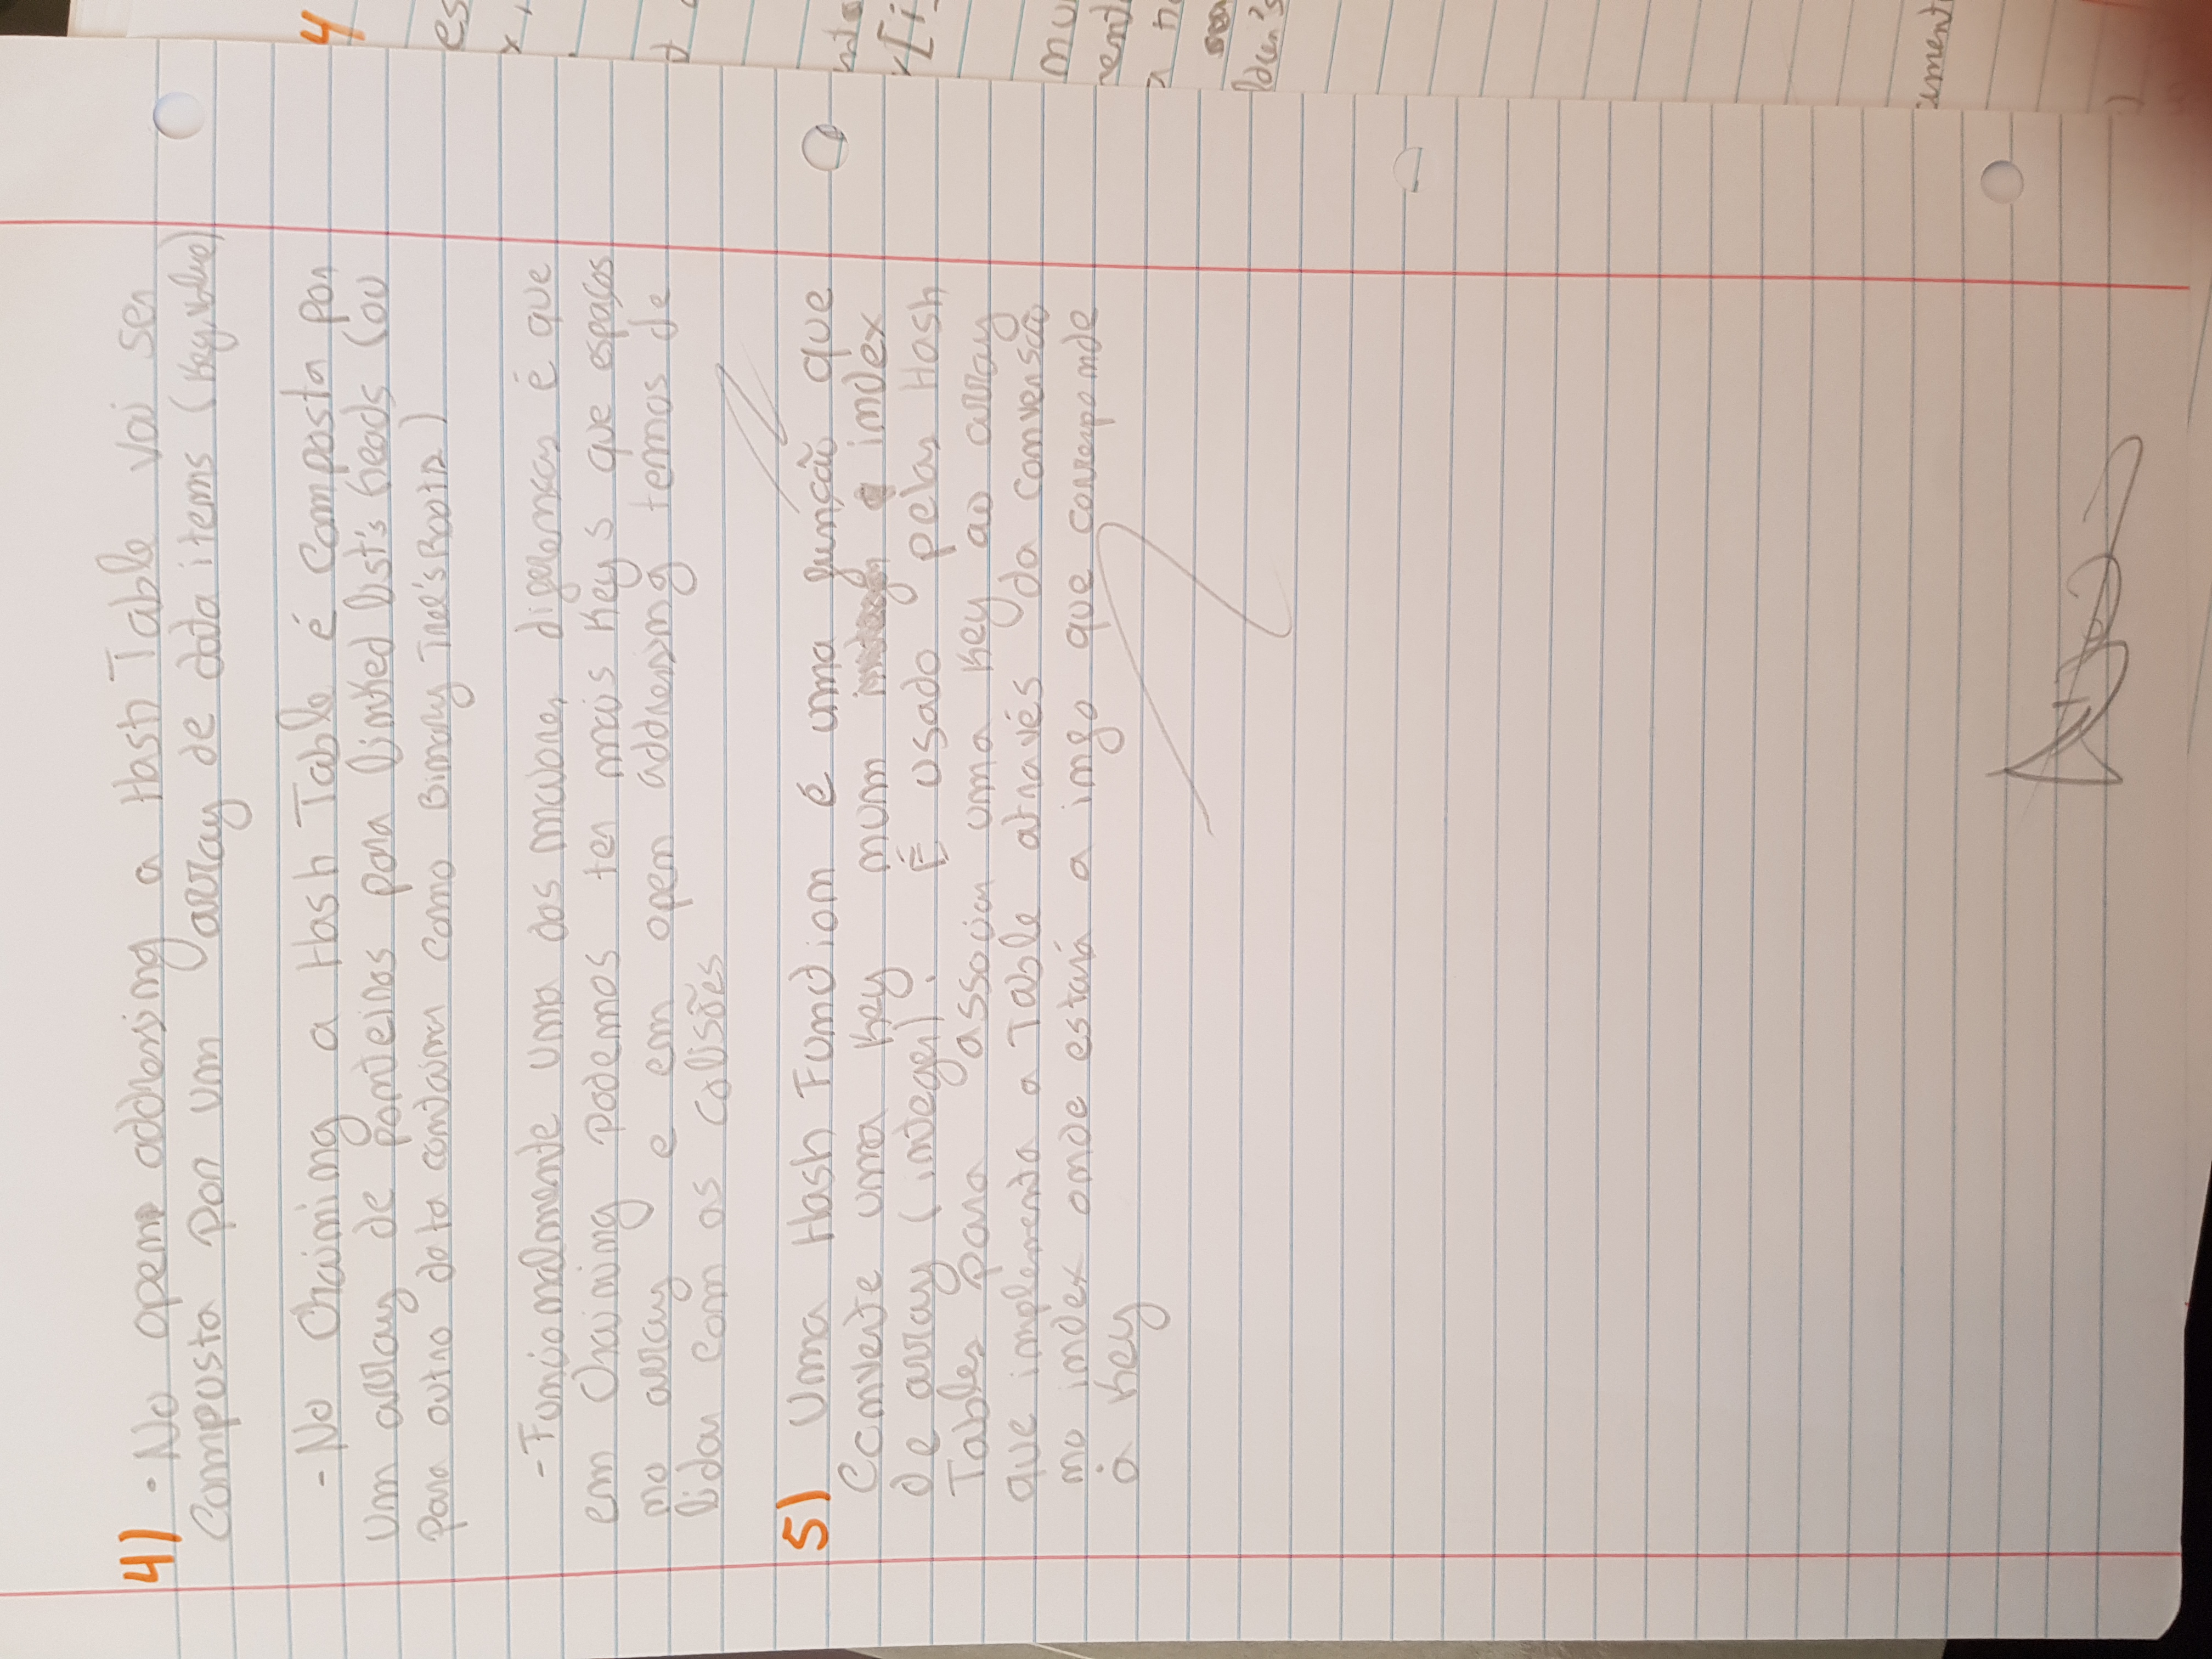 4) - No open addressing a Hash Table vai ser
composta por um array de data items (key, value)
- No Chaining a Hash Table é composta por
um array de ponteiros para linked list's heads (ou
para outro data container como Binary Tree's Roots)
- Funcionalmente uma das maiores diferenças é que
em Chaining podemos ter mais keys que espaços
no array e em open addressing temos de
lidar com as colisões
5) Uma Hash Function é uma função que
Converte uma key num index
de array (integer). É usado pelas Hash
Tables para associar uma key ao array
que implementa a Table através da conversão
no index onde estará a info que corresponde
à key
4
es
x,